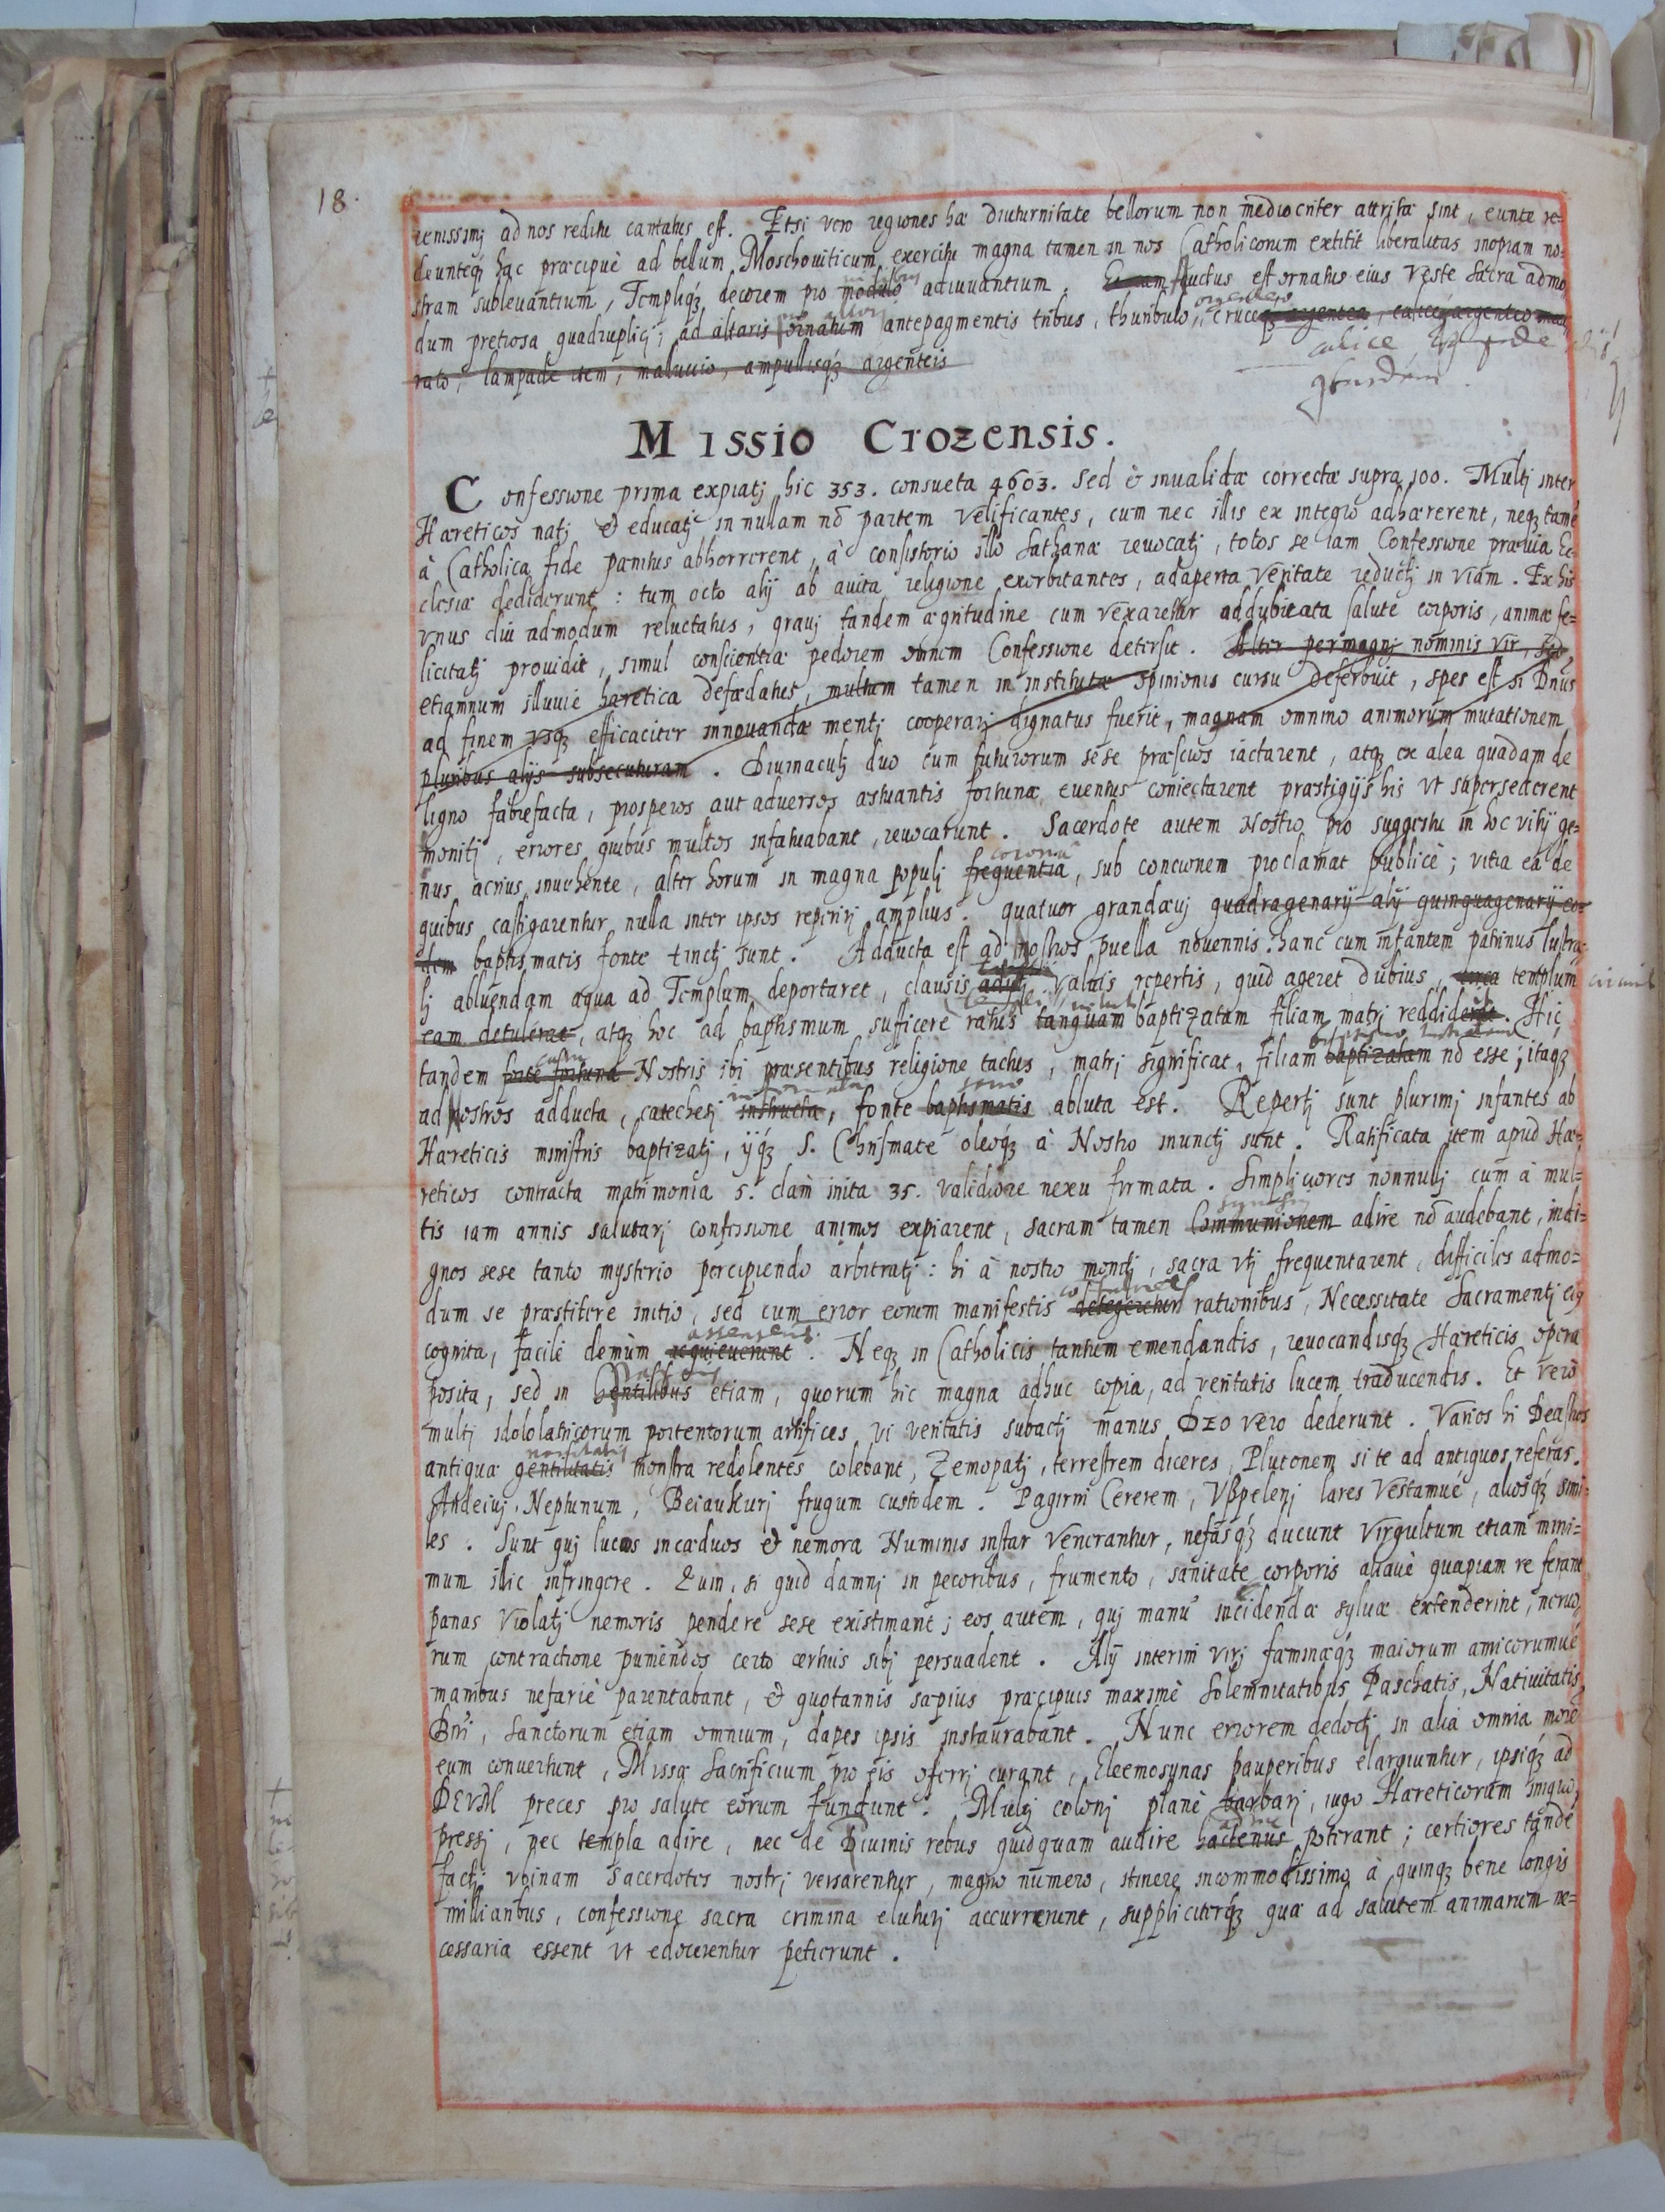 18.
uenissimj ad nos reditu cantatus est. Etsi vero regiones hæ diuturnitate bellorum non mediocriter attritæ sint, eunte re-
deunteq́ȝ hac præcipuè ad bellum Moschouiticum exercitu magna tamen in nos Catholicorum extitit liberalitas inopiam no=
stram subleuantium, Templiq́ȝ decorem pro modulo adiuuantium. Et iam auctus est ornatus eius veste sacra admo
dum pretiosa quadruplicj; ad altaris ornatum antepagmentis tribus, thuribulo, argenteo cruceq́ȝ argentea, calice argenteo
rato, lampade item, maluuio, ampullisq́ȝ argenteis
calice
Missio Crozensis.
Confessione prima expiatj hic 353. consueta 4603. sed & inualidæ correctæ supra 100. Multj inter
Hæreticos natj & educatj in nullam nō partem velificantes, cum nec illis ex integro adhærerent, neqȝ tamē
à Catholica fide pænitus abhorrerent, à consistorio illo Sathanæ reuocatj, totos se iam Confessione præuia Ec-
clesiæ dediderunt: tum octo alij ab auita religione exorbitantes, adaperta veritate reductj in viam. Ex his
vnus diu admodum reluctatus, grauj tandem ægritudine cum vexaretur addubitata salute corporis, animæ fe=
licitatj prouidit, simul conscientiæ pedorem omnem Confessione detersit. Alter permagnj nominis vir, sed
etiamnum illuuie hæretica defædatus, multum tamen in institutæ opinionis cursu deferbuit, spes est si Dnus
ad finem vsqȝ efficaciter innouandæ mentj cooperarj dignatus fuerit, magnam omnino animorum mutationem
pluribus alijs subsecuturam. Diuinaculj duo cum futurorum sese præscios iactarent, atqȝ ex alea quadam de
ligno fabrefacta, prosperos aut aduersos æstuantis fortunæ euentus coniectarent præstigijs his vt supersederent
monitj, errores quibus multos infatuabant, reuocarunt. Sacerdote autem Nostro pro suggestu in hoc vitij ge=
nus acrius inuehente, alter horum in magna populj frequentia corona, sub concionem proclamat publicè; vitia ea de
quibus castigarentur nulla inter ipsos reperirj amplius. quatuor grandæuj quadragenarij alij quinquagenarij eo=
dem baptismatis fonte tinctj sunt. Adducta est ad nostros puella nouennis: hanc cum infantem patrinus lustra=
lj abluendam aqua ad Templum deportaret, clausis valuis repertis, quid ageret dubius, circa templum
eam detulerat, atqȝ hoc ad baptismum sufficere ratus tanquam baptizatam filiam matrj reddiderat. Hic
tandem forte fortuna casu Nostris ibi præsentibus religione tactus, matrj significat, filiam baptizatam nō esse; itaqȝ
ad nostros adducta, catechesj instructa, fonte baptismatis sacro abluta est. Repertj sunt plurimj infantes ab
Hæreticis ministris baptizatj, ijq́ȝ S. Chrismate oleoq́ȝ à Nostro inunctj sunt. Ratificata item apud Hæ=
reticos contracta matrimonia 5. clam inita 35. validiore nexu firmata. Simpliciores nonnullj cum à mul=
tis iam annis salutarj confessione animos expiarent, sacram tamen Communionem synaxim adire nō audebant, indi=
gnos sese tanto mysterio percipiendo arbitratj: hi à nostro monitj, sacra vtj frequentarent, difficiles admo=
dum se præstitere initio, sed cum error eorum manifestis detegeretur rationibus, Necessitate Sacramentj eiq
cognita, facilè demùm acquieuerunt. Neqȝ in Catholicis tantum emendandis, reuocandisq́ȝ Hæreticis opera
posita, sed in Gentilibus etiam, quorum hic magna adhuc copia, ad veritatis lucem traducendis. Et vero
multj idololatricorum portentorum artifices vi veritatis subactj manus DEO vero dederunt. Varios hi Deastros
antiquæ gentilitatis monstra redolentes colebant, Zemopatj, terrestrem diceres, Plutonem si te ad antiquos referas.
Andeiuj, Neptunum, Beiaukurj frugum custodem. Pagirni Cererem, Vßpelenj lares Vestamué, aliosq́ȝ simi=
les. Sunt quj lucos incæduos & nemora Numinis instar venerantur, nefasq́ȝ ducunt virgultum etiam mini=
mum illic infringere. Quin, si quid damnj in pecoribus, frumento, sanitate corporis aliaue quapiam re ferant
pænas violatj nemoris pendere sese existimant; eos autem, quj manū incidendæ syluæ extenderint, neruo,
rum contractione puniendos certo certius sibj persuadent. Alij interim virj fæminæq́ȝ maiorum amicorumué
manibus nefariè parentabant, & quotannis sæpius præcipuis maximè solemnitatibus Paschatis, Natiuitatis
Dni, Sanctorum etiam omnium, dapes ipsis instaurabant. Nunc errorem dedoctj in alia omnia more
eum conuertunt, Missæ Sacrificium pro eis offerrj curant, Eleemosynas pauperibus elargiuntur, ipsiq́ȝ ad
DEVM preces pro salute eorum fundunt. Multj colonj planè barbarj, iugo Hæreticorum iniquo
pressj, nec templa adire, nec de Diuinis rebus quidquam audire hactenus poterant; certiores tandē
factj vbinam Sacerdotes nostrj versarentur, magno numero, itinere incommodissimo à quinqȝ bene longis
milliaribus, confessione sacra crimina eluturj accurrerunt, suppliciterq́ȝ quæ ad salutem animarum ne=
cessaria essent vt edocerentur petierunt.